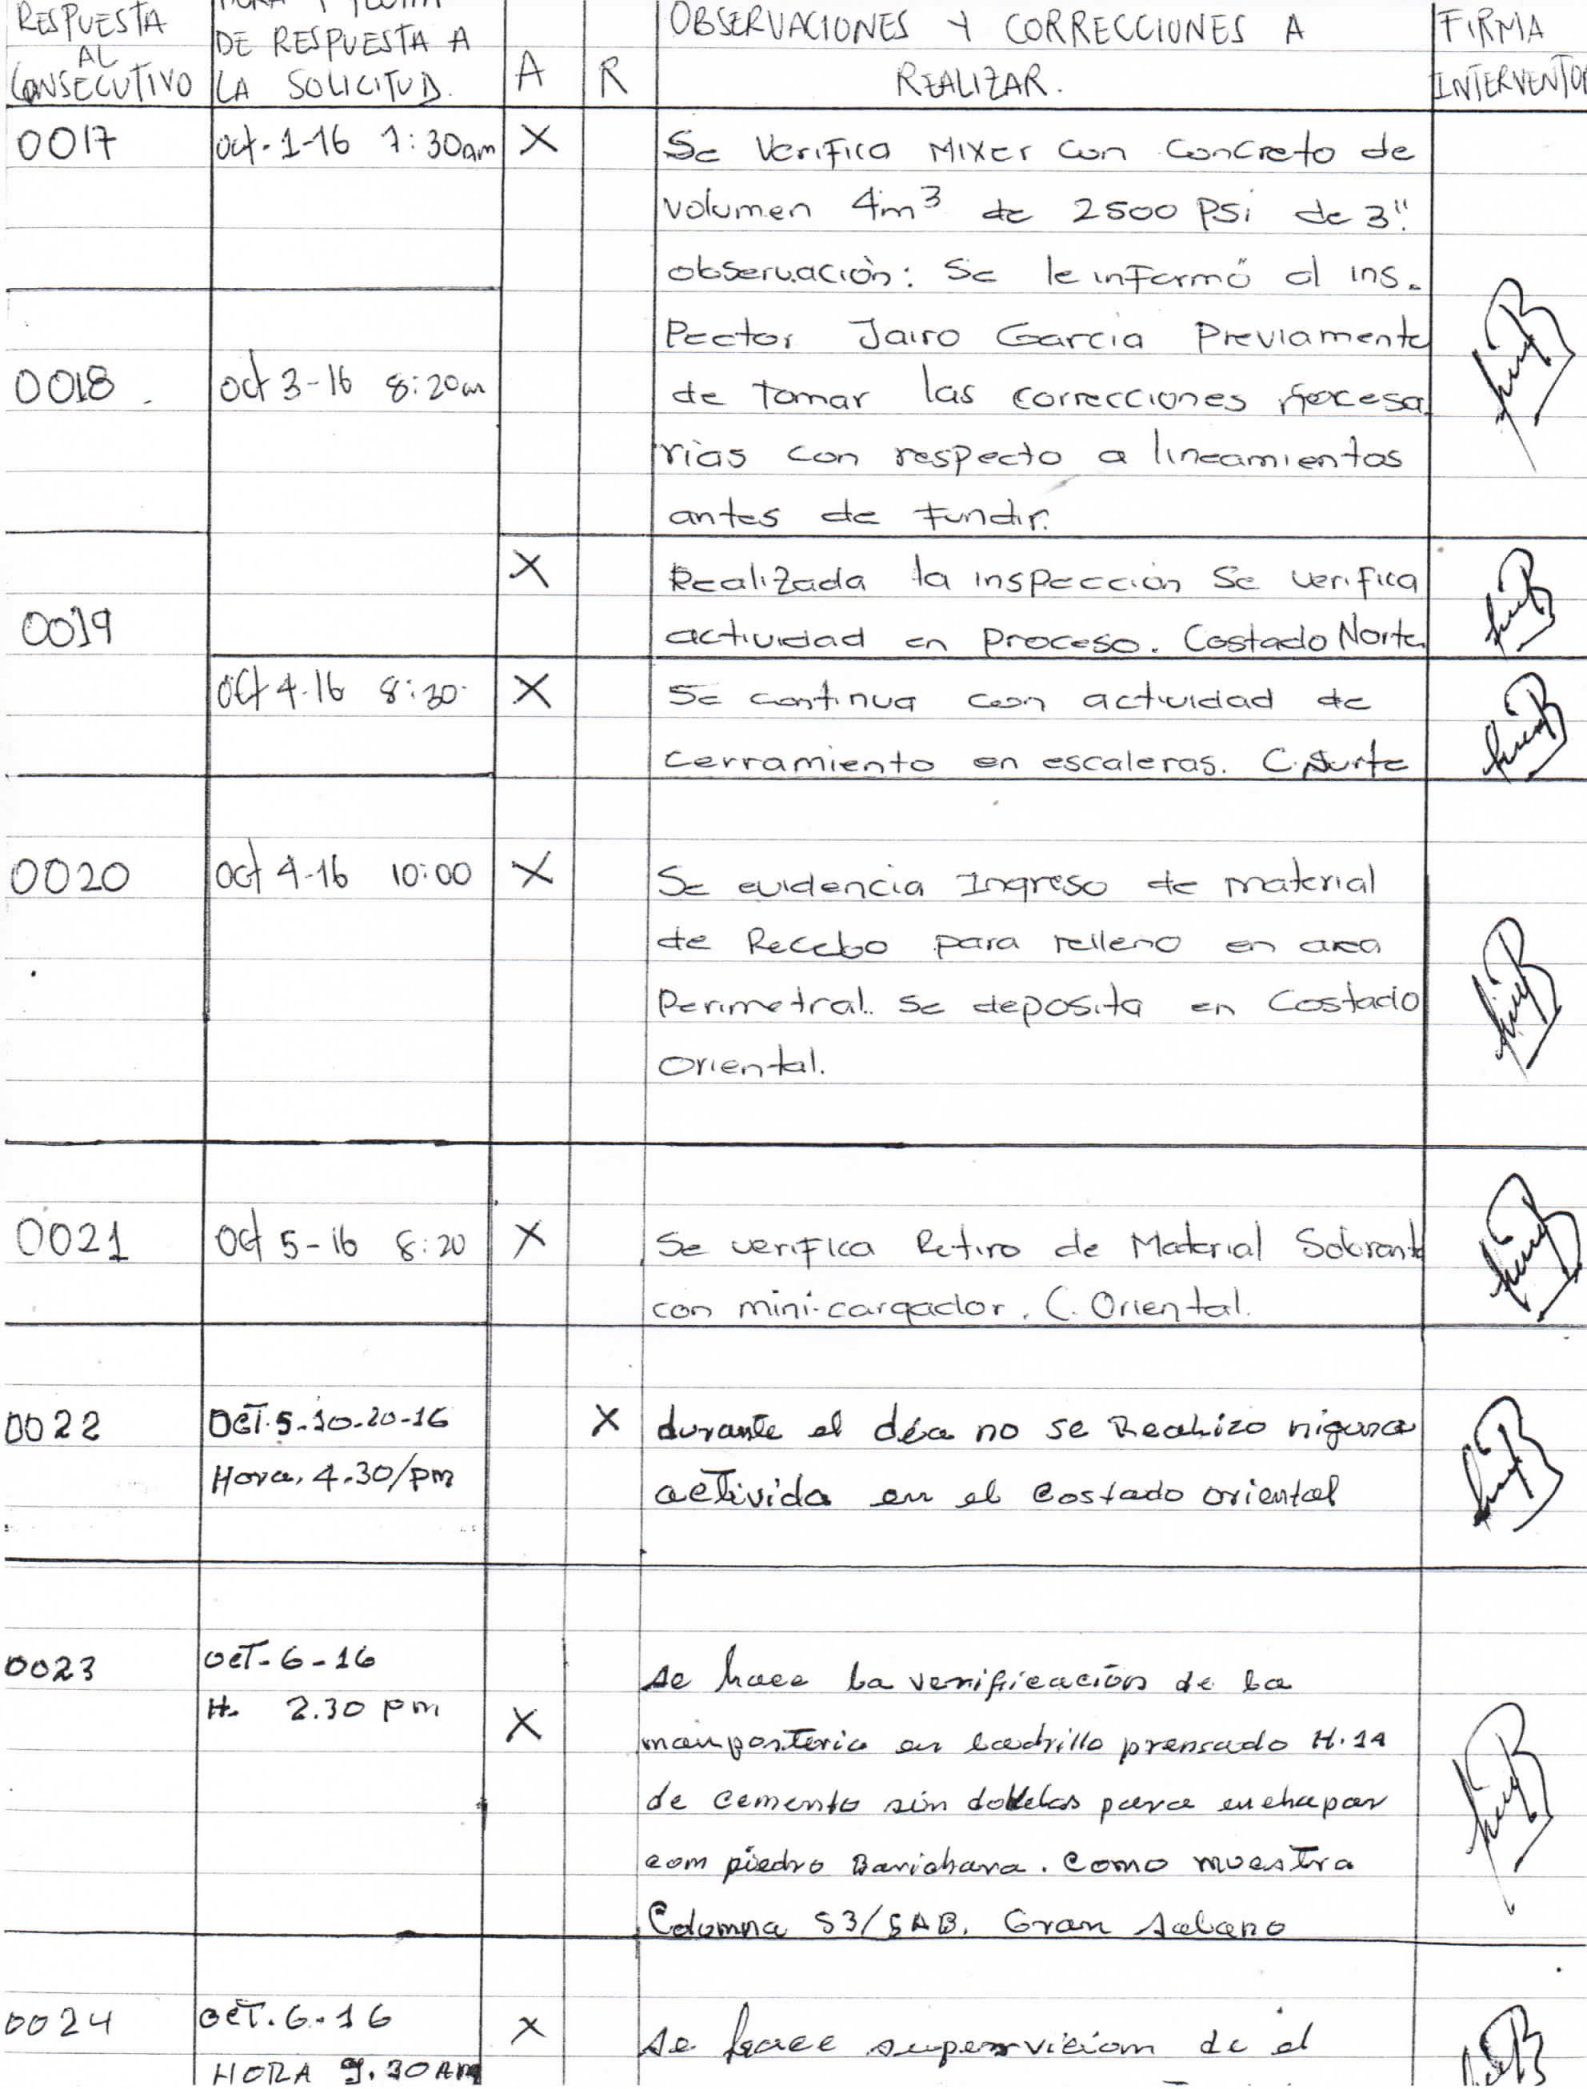 RESPUESTA
AL
CONSECUTIVO
HORA Y FECHA
DE RESPUESTA A
LA SOLICITUD.
A
R
OBSERVACIONES Y CORRECCIONES A
REALIZAR.
FIRMA
INTERVENTOR
0017
oct-1-16 7:30am
X
Se Verifica Mixer con concreto de
volumen 4m³ de 2500 PSi de 3".
observación: Se le informó al ins.
Pector Jairo Garcia Previamente
0018
oct 3-16 8:20am
de tomar las correcciones necesa
rias con respecto a lineamientos
antes de Fundir.
X
Realizada la inspección Se verifica
0019
actividad en proceso. Costado Norte
oct 4-16 8:30
X
Se continua con actividad de
cerramiento en escaleras. C. Norte
0020
oct 4-16 10:00
X
Se evidencia Ingreso de material
de Recebo para relleno en area
Perimetral. Se deposita en Costado
Oriental.
0021
Oct 5-16 8:20
X
Se verifica Retiro de Material Sobrante
con mini-cargador. C. Oriental.
0022
OCT.5-10-20-16
Hora. 4.30/pm
X
durante el día no se Realizo niguna
activida en el costado oriental
0023
OCT-6-16
H. 2.30 pm
X
se hace la verificación de la
mamposteria en ladrillo prensado H.14
de cemento sin dovelas para enchapar
com piedra Barichara. Como muestra
Columna S3/SAB. Gran Sabana
0024
OCT.6-16
HORA 9.30 AM
X
se hace supervicion de el